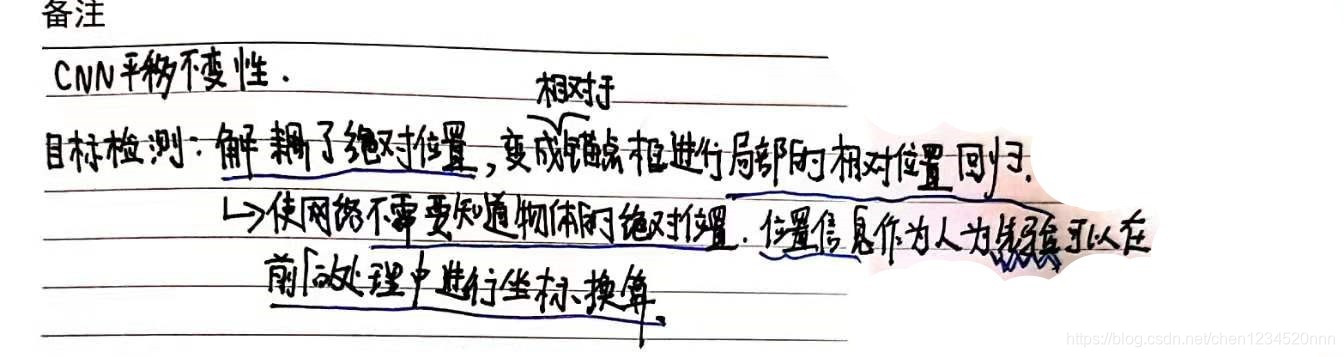 备注
CNN平移不变性.
相对于
目标检测：解耦了绝对位置，变成锚点框进行局部的相对位置回归.
↳使网络不需要知道物体的绝对位置. 位置信息作为人为先验可以在
前后处理中进行坐标换算.
https://blog.csdn.net/chen1234520nnn